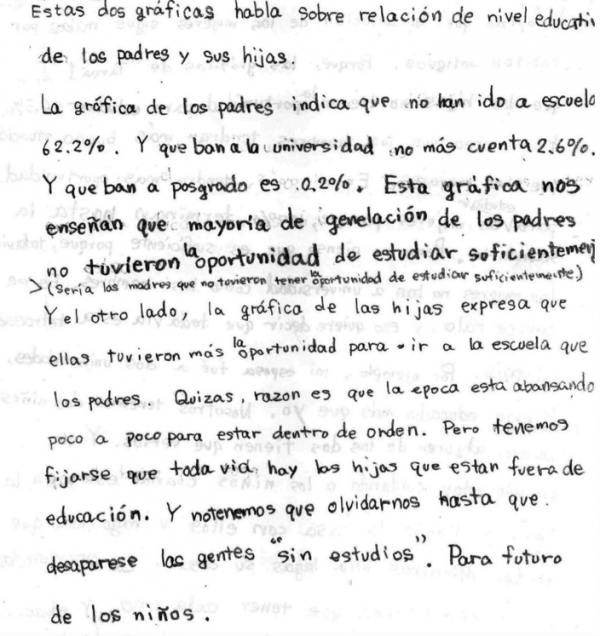 Estas dos gráficas habla sobre relación de nivel educati
de los padres y sus hijas.
La gráfica de los padres indica que no han ido a escuela
62.2%. Y que ban a la universidad no más cuenta 2.6%.
Y que ban a posgrado es 0.2%. Esta gráfica nos
enseñan que mayoría de genelación de los padres
no tuvieron la oportunidad de estudiar suficientemen
(Sería las madres que no tovieron tener la oportunidad de estudiar suficientemente.)
Y el otro lado, la gráfica de las hijas expresa que
ellas tuvieron más la oportunidad para ir a la escuela que
los padres. Quizas, razon es que la epoca esta abansando
poco a poco para estar dentro de orden. Pero tenemos
fijarse que toda vid, hay las hijas que estan fuera de
educación. Y notenemos que olvidarnos hasta que
desaparese las gentes "sin estudios". Para futuro
de los niños.